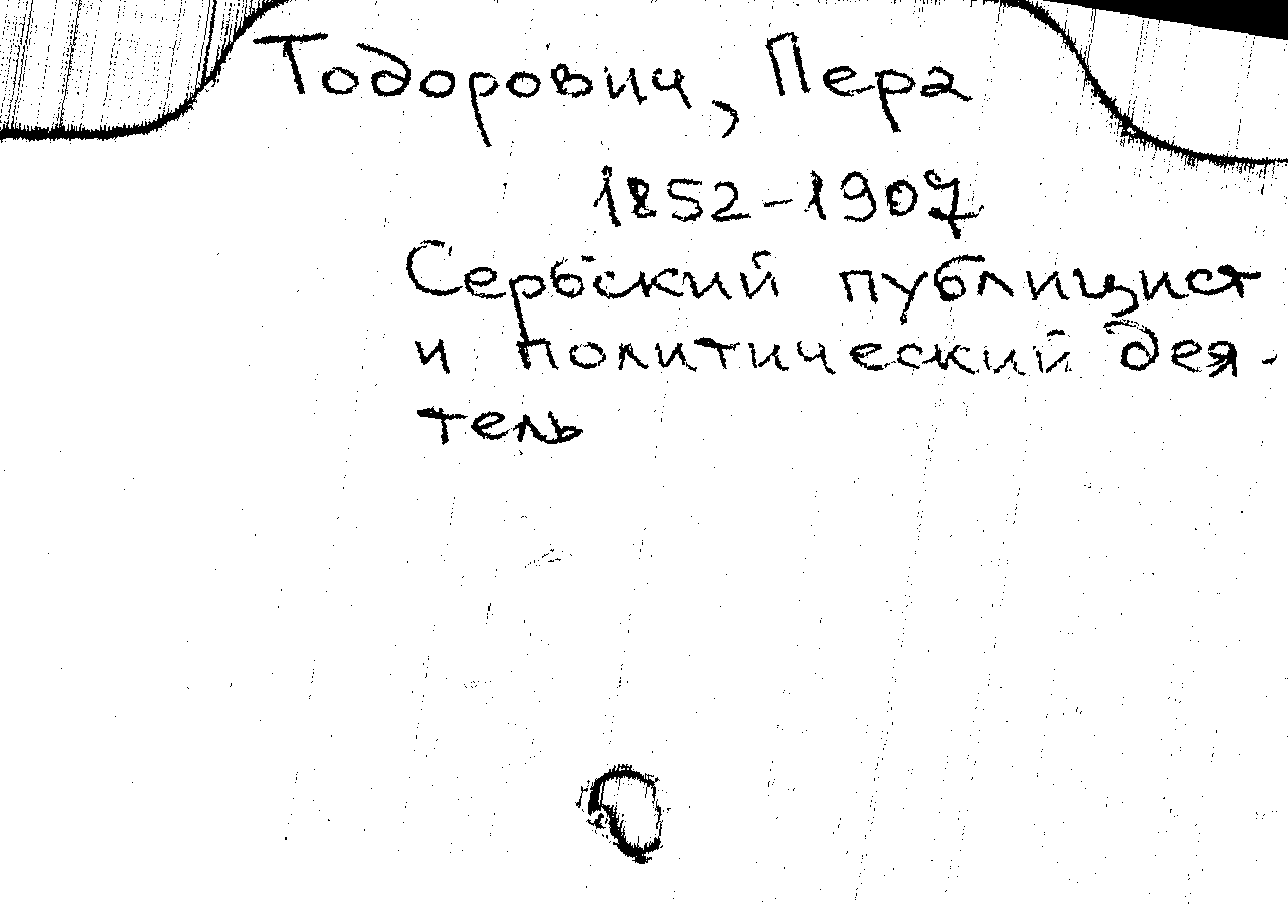 Тодорович, Пера
1852-1907
Сербский публицист
и политический дея-
тель